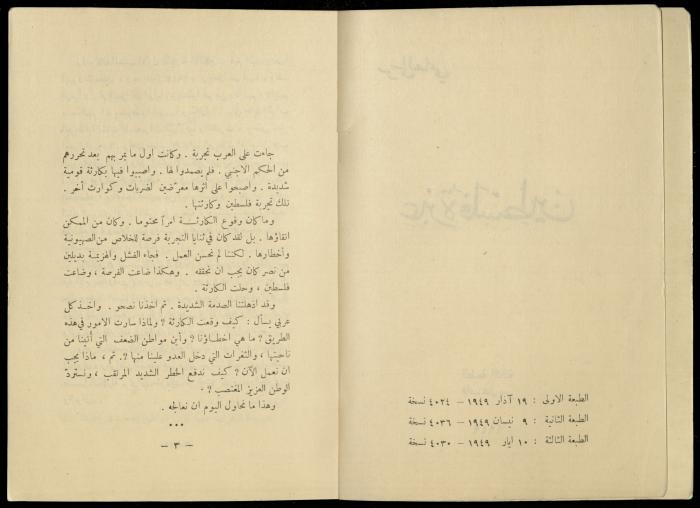 الطبعة الاولى : ١٩ آذار ١٩٤٩ – ٤٠٢٤ نسخة
الطبعة الثانية : ٩ نيسان ١٩٤٩ – ٤٠٣٦ نسخة
الطبعة الثالثة : ١٠ ايار ١٩٤٩ – ٤٠٣٠ نسخة
جاءت على العرب تجربة . وكانت اول ما يمر بهم بعد تحررهم
من الحكم الاجنبي . فلم يصمدوا لها . واصيبوا فيها بكارثة قومية
شديدة . واصبحوا على أثرها معرّضين لضربات وكوارث أخر .
تلك تجربة فلسطين وكارثتها .
وما كان وقوع الكارثة امراً محتوماً . وكان من الممكن
اتقاؤها . بل لقد كان في ثنايا التجربة فرصة للخلاص من الصهيونية
وأخطارها . لكننا لم نحسن العمل . فجاء الفشل والهزيمة بديلين
من نصر كان يجب ان نحققه . وهكذا ضاعت الفرصة ، وضاعت
فلسطين ، وحلت الكارثة .
وقد اذهلتنا الصدمة الشديدة . ثم اخذنا نصحو . واخذ كل
عربي يسأل : كيف وقعت الكارثة ؟ ولماذا سارت الامور في هذه
الطريق ؟ ما هي اخطاؤنا ؟ وأين مواطن الضعف التي أُتينا من
ناحيتها ، والثغرات التي دخل العدو علينا منها ؟. ثم ، ماذا يجب
ان نعمل الآن ؟ كيف ندفع الخطر الشديد المرتقب ، ونستردّ
الوطن العزيز المغتصب ؟ .
وهذا ما نحاول اليوم ان نعالجه .
•••
– ٣ –